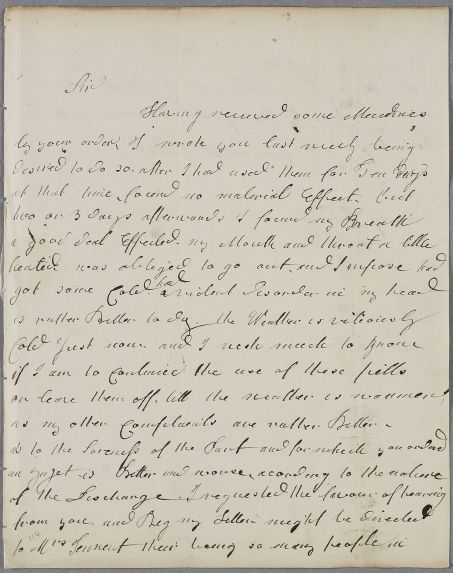 Sir
Having received some Medicines
by your order, I wrote you last week being
desired to do so after I had used them for Ten Days
at that time found no material Effect. but
two or 3 days afterwards I found my Breath
a good deal Effected. my Mouth and throat a little
heated. was obliged to go out, and I supose had
got some Cold. had a violent disorder in my head
is rather Better to day. the Weather is vitiously
Cold Just now. and I wish much to know
if I am to Continue the use of these pills
or leave them off. till the weather is warmer,
as my other Complaints are rather Better.
as to the Soreness of the Part and for which you ordered
an is Better and worse, acording to the nature
of the Discharge. I requested the favour of hearing
from you, and Beg my Letter might be directed
to Mrs Tennent their being so many people in